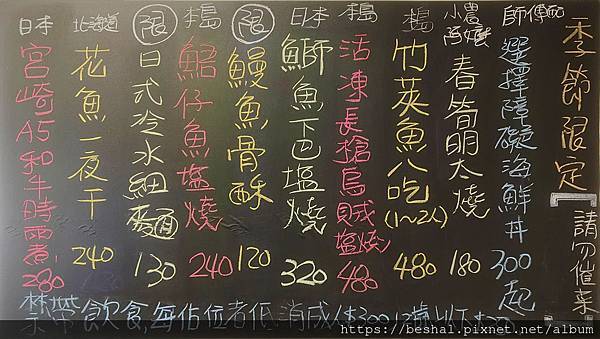 季節限定
請勿催菜
師傅配
選擇障礙海鮮丼 300起
小農阿嬤
春筍明太燒 180
本島
竹莢魚八吃 (1~2人) 480
本島
活凍長槍烏賊塩燒 480
日本
鰤魚下巴塩燒 320
限
鰻魚骨酥 120
本島
鮎仔魚塩燒 240
限
日式冷水細麵 130
北海道
花魚一夜干 240
日本
宮崎A5和牛時雨煮 280
禁帶飲食,每佔位者低消成人300 12歲以下
https://beshal.pixnet.net/album